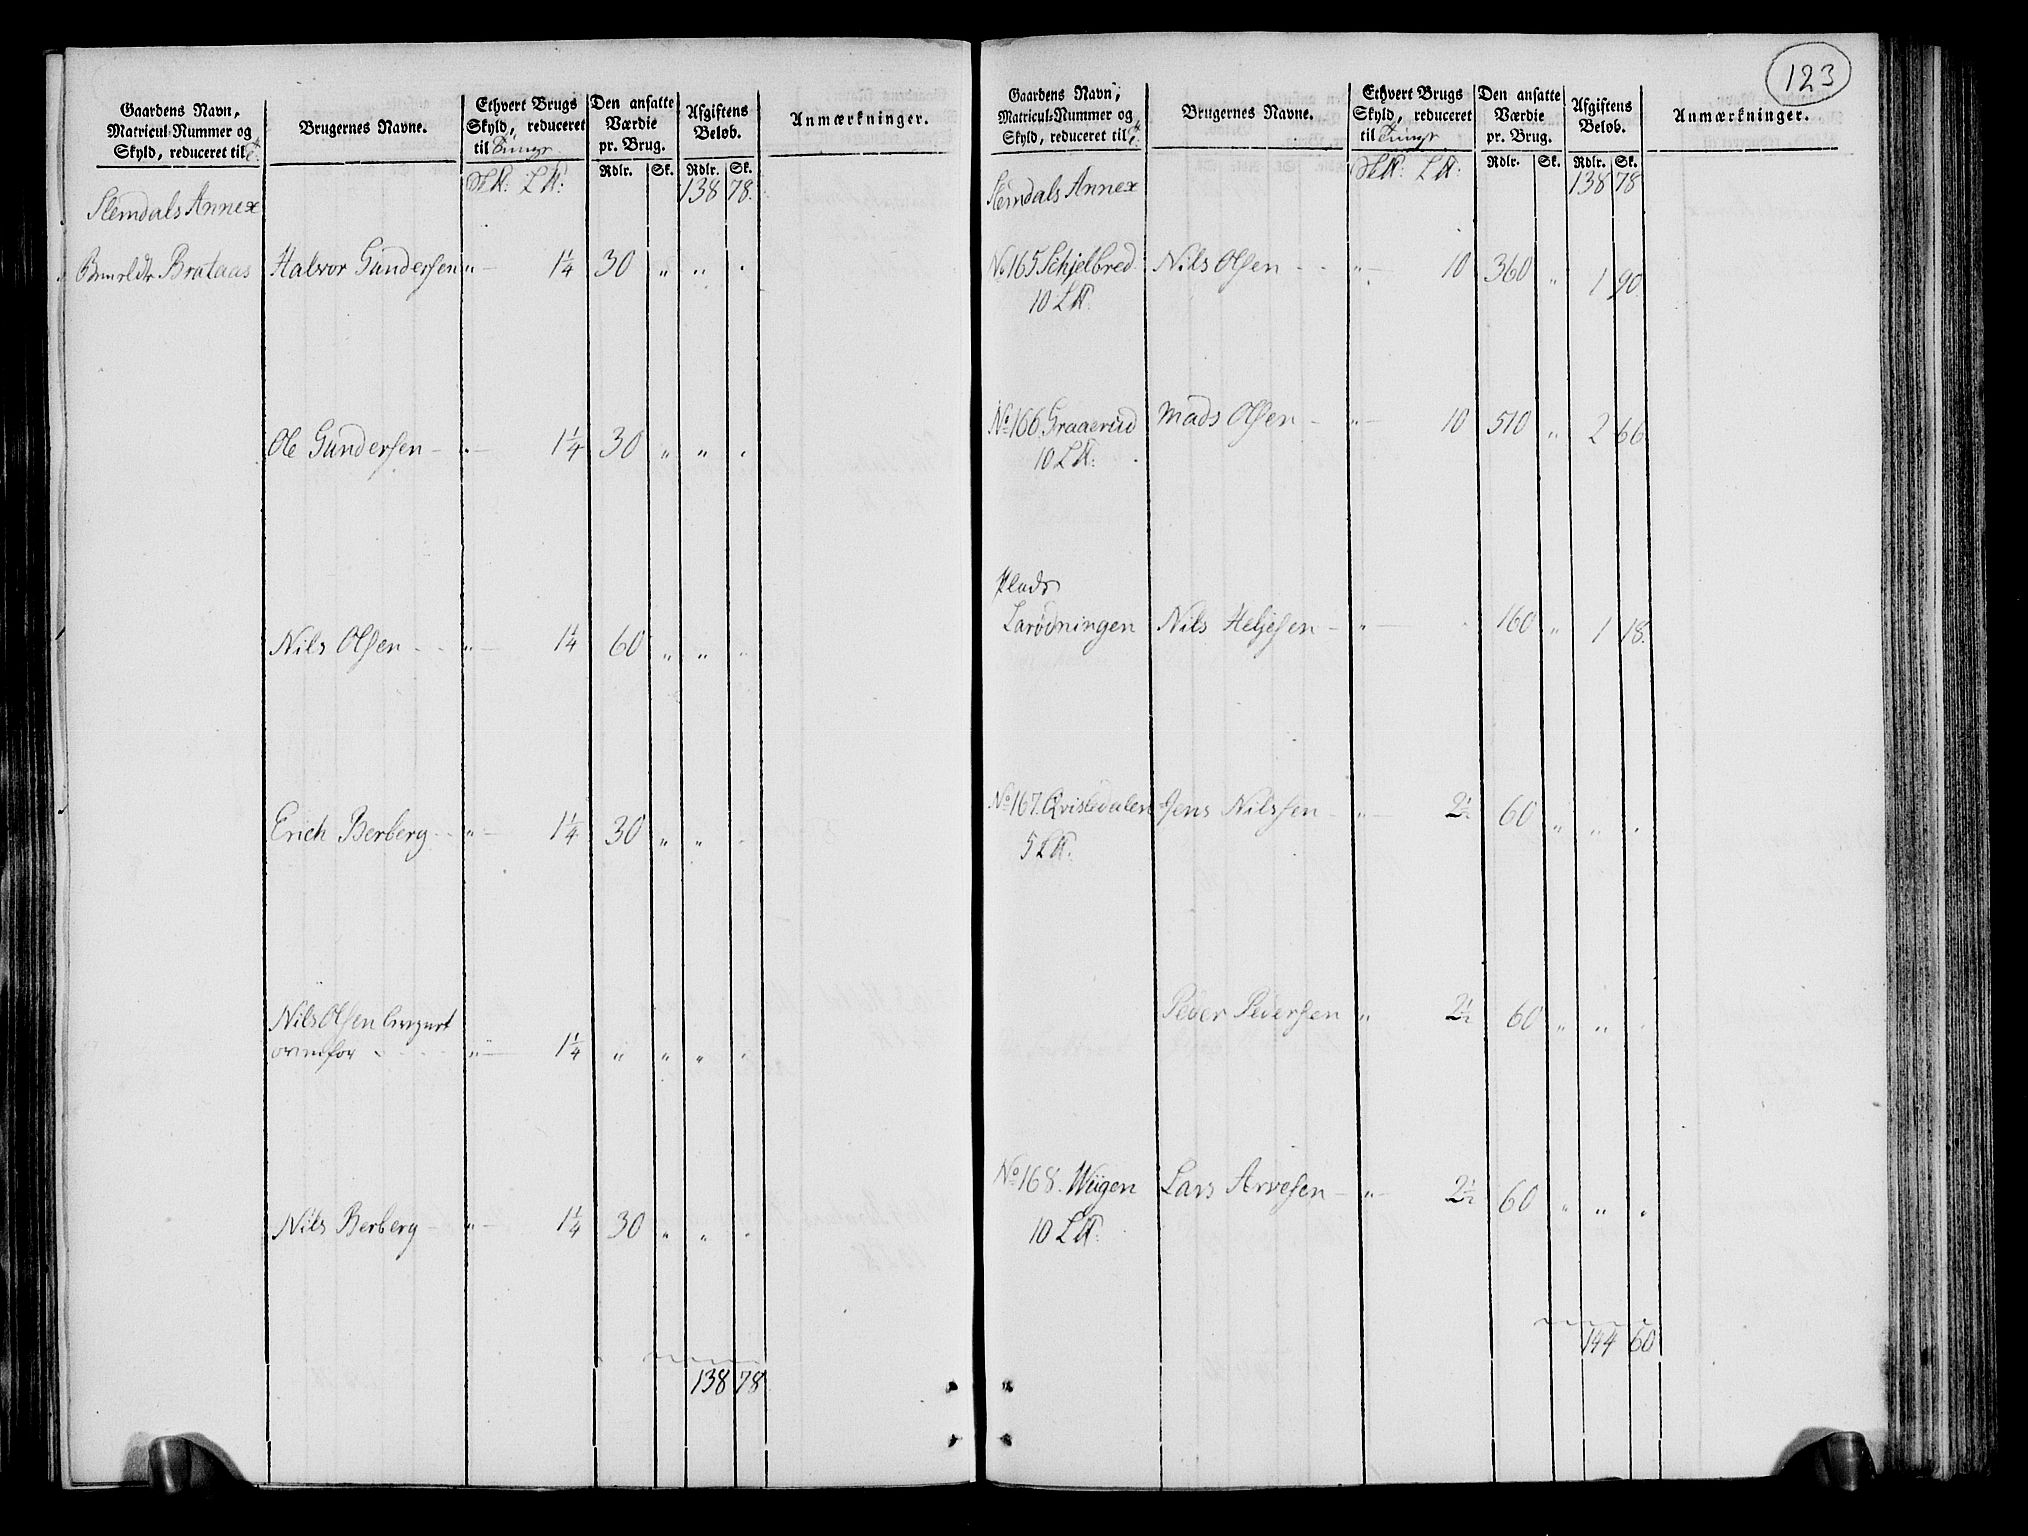 Gaardens Navn,
Matricul-Nummer og
Skyld, reduceret til
Brugernes Navne.
Ethvert Brugs
Skyld, reduceret
til Tunge
Den ansatte
Værdie
pr. Brug.
Afgiftens
Beløb.
Anmærkninger.
Rdlr. Sk. Rdlr. Sk.
Slemdals Annex 138 78.
Brataas Halvor Gundersen " 1 1/4 30 " " "
Ole Gundersen " 1 1/4 30 " " "
Nils Olsen " 1 1/4 60 " " "
Erich Berberg " 1 1/4 30 " " "
Nils Olsen
" 1 1/4 " " " "
Nils Berberg " 1 1/4 30 " " "
138 78
123
Gaardens Navn,
Matricul-Nummer og
Skyld, reduceret til
Brugernes Navne.
Ethvert Brugs
Skyld, reduceret
til Tunge
Den ansatte
Værdie
pr. Brug.
Afgiftens
Beløb.
Anmærkninger.
Rdlr. Sk. Rdlr. Sk.
Slemdals Annex 138 78
No 165 Schjelbred Nils Olsen " 10 360 " 1 90
10 L℔.
No 166 Graaerud Mads Olsen " 10 510 " 2 66
10 L℔.
Plads
Larødningen Nils Heljesen " 160 " 1 18.
No 167. Qvisledalen Jens Nilssen " 2 1/2 60 " " "
5 L℔.
Peder Pedersen " 2 1/2 60 " " "
No 168. Wiigen Lars Arvesen " 2 1/2 60 " " "
10 L℔.
144 60